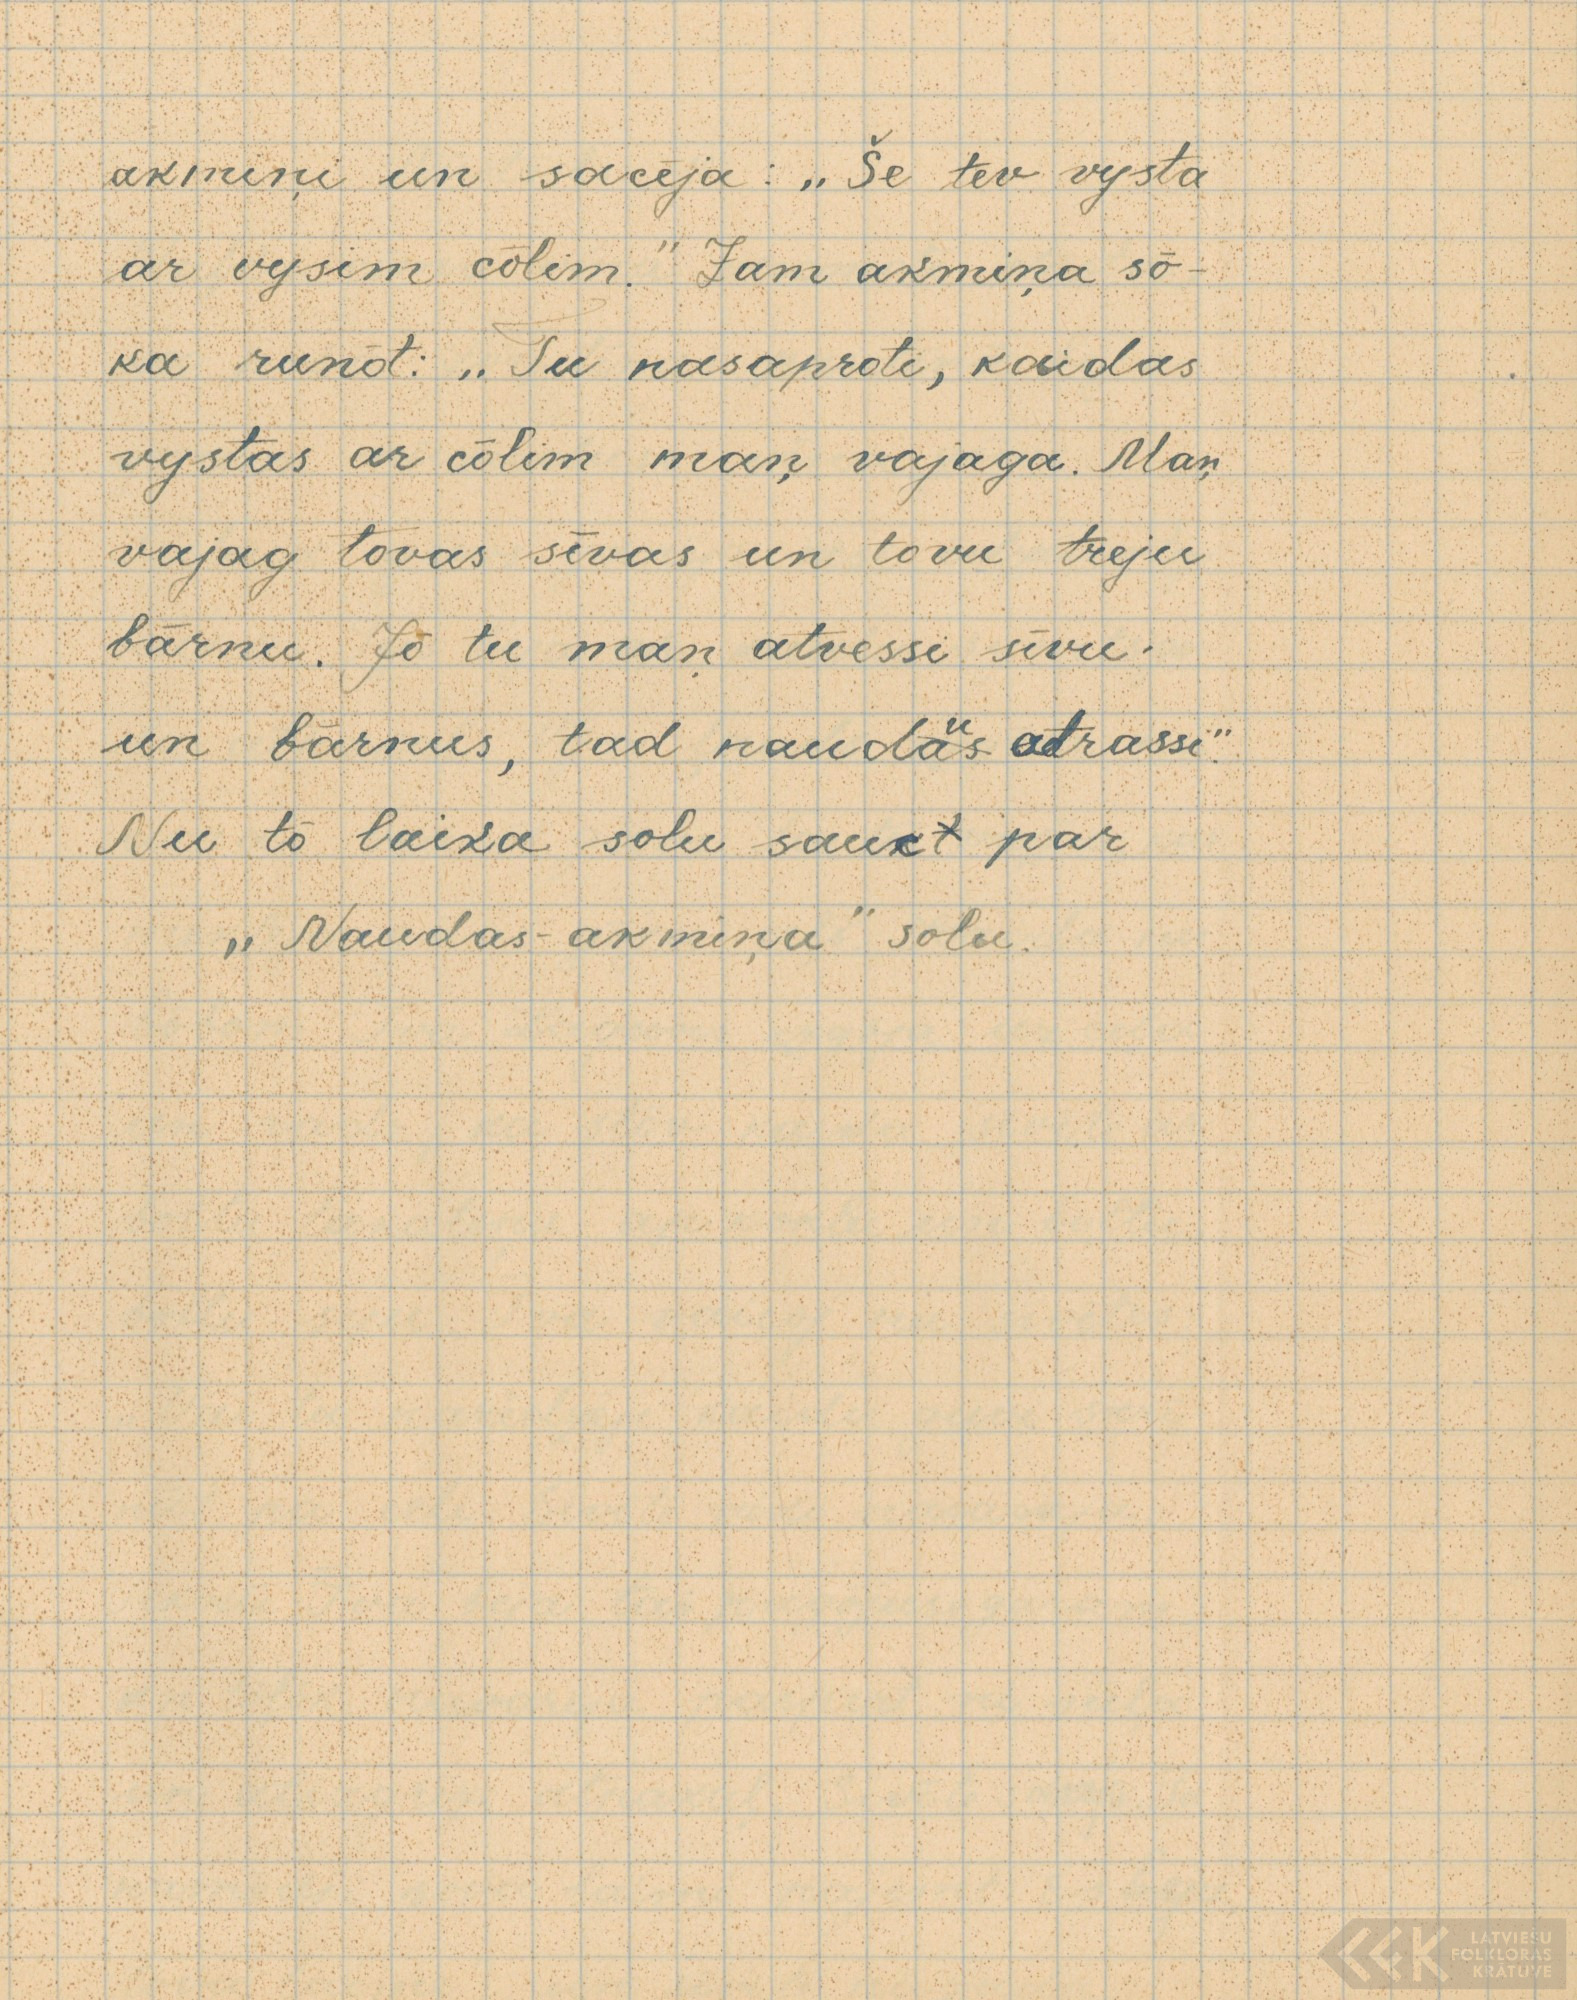 akmiņi un sacēja: „Še tev vysta
ar vysim cōlim." Jam akmiņa sō-
ka runōt: „Tu nasaproti, kaidas
vystas ar cōlim maņ vajaga. Maņ
vajag tovas sīvas un tovu treju
bārnu. Jō tu maņ atvessi sīvu
un bārnus, tad naudu atrassi."
Nu tō laika solu sauct par
„Naudas-akmiņa" solu.
LATVIEŠU
FOLKLORAS
KRĀTUVE